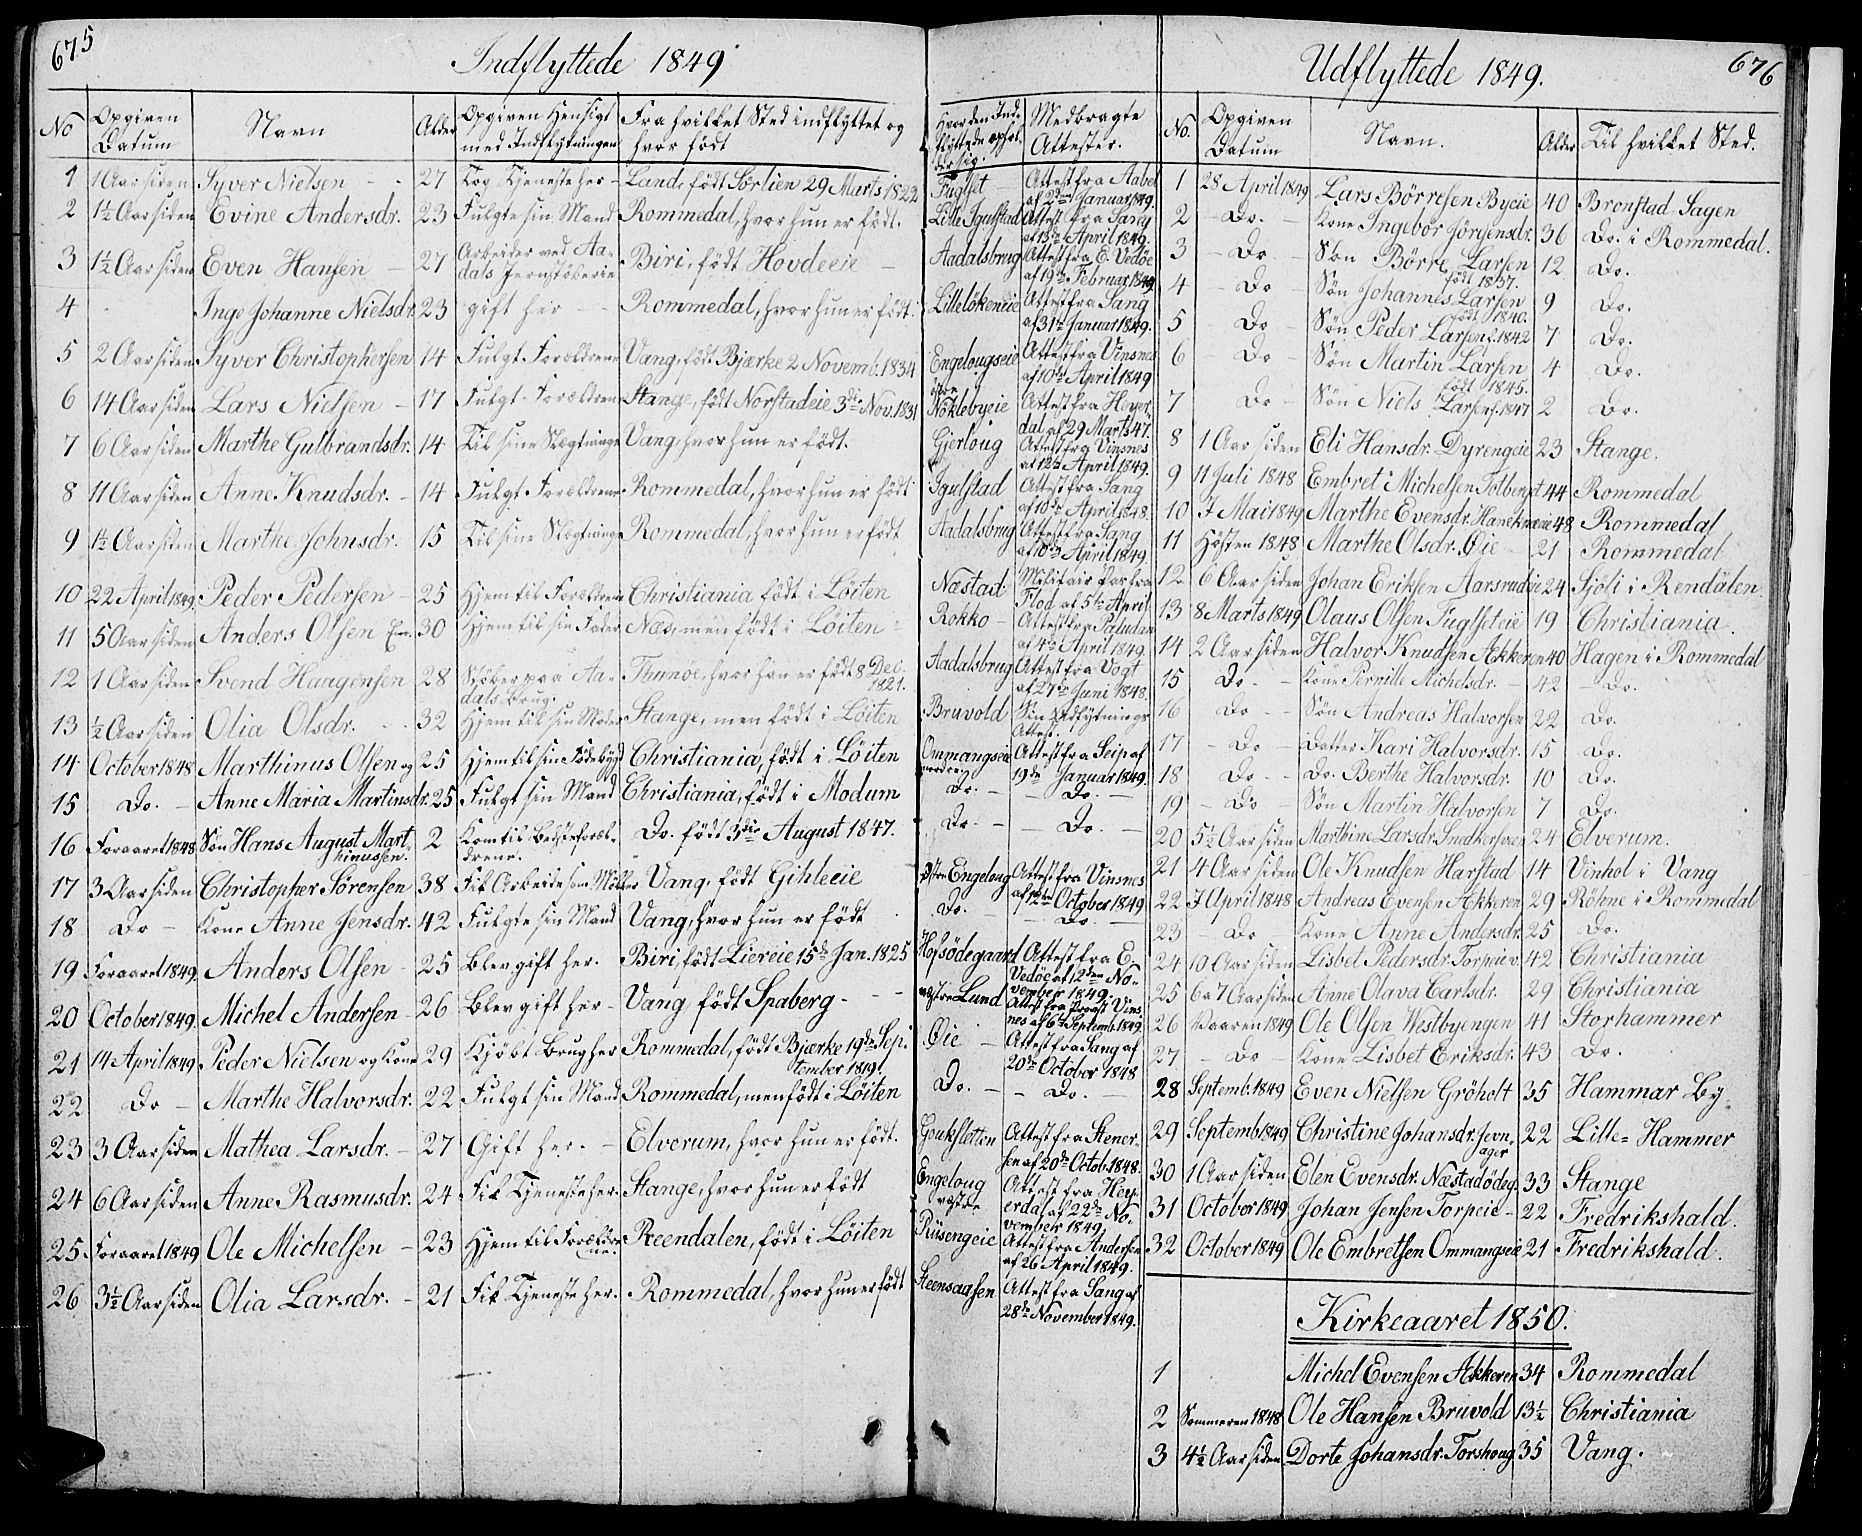 675
Indflyttede 1849
No | Opgiven Datum | Navn | Alder | Opgiven Hensigt med Indflytningen | Fra hvilket Sted indflyttet og hvor født | Hvor den Indflyttede opholder sig. | Medbragte Attester.
1 | 1 Aar siden | Syver Nielsen | 27 | Tog Tjeneste her | Land, født Sørlien 29 Marts 1822 | Fuglset | Attest fra Aabel af 2den Januar 1849.
2 | 1½ Aar siden | Evine Andersdr. | 23 | Fulgte sin Mand | Rommedal, hvor hun er født. | Lille Igulstad | Attest fra Sang af 13de April 1849.
3 | 1½ Aar siden | Even Hansen | 27 | Arbeider ved Aadals Jernstøberie | Biri, født Hovdeeie | Aadalsbrug | Attest fra E. Vedøe af 19de Februar 1849.
4 | Inge Johanne Nielsdr. | 23 | gift her | Rommedal, hvor hun er født. | Lilleløkeneie | Attest fra Sang af 31te Januar 1849.
5 | 2 Aar siden | Syver Christophersen | 14 | Fulgt Forældrene | Vang, født Bjærke 2 Novemb. 1834 | Engelougseie østre | Attest fra Vinsnes af 10de April 1849
6 | 14 Aar siden | Lars Nielsen | 17 | Fulgt Forældrene | Stange, født Norstadeie 3die Nov. 1831 | Nøklebyeie | Attest fra Heyerdal af 29 Marts 47.
7 | 6 Aar siden | Marthe Gulbrandsdr. | 14 | Til sine Slægtninge | Vang, hvor hun er født. | Gjerloug | Attest fra Vinsnes af 12te April 1849.
8 | 11 Aar siden | Anne Knudsdr. | 14 | Fulgt Forældrene | Rommedal, hvor hun er født | Igulstad | Attest fra Sang af 10de April 1848.
9 | 1½ Aar siden | Marthe Johnsdr. | 15 | Til sine Slægtninge | Rommedal, hvor hun er født | Aadalsbrug | Attest fra Sang af 10de April 1849.
10 | 22 April 1849. | Peder Pedersen | 25 | Hjem til Forældrene | Christiania født i Løiten | Næstad | Militair Pas fra Flod af 5te April
11 | 5 Aar siden | Anders Olsen | 30 | Hjem til sin Fader | Næs, men født i Løiten | Rokko | Attest fra Paludan af 4de April 1849.
12 | 1 Aar siden | Svend Haagensen | 28 | Støber paa Aadals Brug. | Thunøe, hvor han er født 8 Dec. 1821. | Aadalsbrug | Attest fra Vogt af 27de Juni 1848.
13 | ½ Aar siden | Olia Olsdr. | 32 | Hjem til sin Moder | Stange, men født i Løiten | Bruvold | Sin Udflytnings Attest.
14 | October 1848 | Marthinus Olsen og | 25 | Hjem til sin Fødebygd | Christiania, født i Løiten | Ommangseie nordre | Attest fra Seip af 19de Januar 1849.
15 | Do. | Anne Maria Martinsdr. | 25 | Fulgt sin Mand | Christiania, født i Modum | Do. | Do.
16 | Foraaret 1848 | Søn Hans August Marthinussen. | 2 | Kom til Bedsteforældrene. | Do. født 3die August 1847. | Do. | Do.
17 | 3 Aar siden | Christopher Sørensen | 38 | Fik Arbeide som Møller | Vang, født Gihleeie | Østre Engeloug | Attest fra Vinsnes af 12den October 1849
18 | Do | Kone Anne Jensdr. | 42 | Fulgte sin Mand | Vang, hvor hun er født | Do. | Do.
19 | Foraaret 1849. | Anders Olsen | 25 | Blev gift her. | Biri, født Liereie 15de Jan. 1825 | Hofsødegaard | Attest fra E. Vedøe af 12den November 1849.
20 | October 1849. | Michel Andersen | 26 | Blev gift her | Vang født Spaberg | vestre Lund | Attest fra Provst Vinsnes af 6te Septemb. 1849.
21 | 14 April 1849 | Peder Nielsen og Kone | 29 | Kjøbt Brug her | Rommedal, født Bjærke 19de September 1819. | Øie | Attest fra Sang af 20de October 1848
22 | Do | Marthe Halvorsdr. | 22 | Fulgt sin Mand | Rommedal, men født i Løiten | Do. | Do.
23 | 3 Aar siden | Mathea Larsdr. | 27 | Gift her. | Elverum, hvor hun er født. | Goukstetten | Attest fra Stenersen af 20de Octob. 1848.
24 | 6 Aar siden | Anne Rasmusdr. | 24 | Fik Tjeneste her. | Stange, hvor hun er født | Engeloug vestre | Attest fra Heyerdal af 22de November 1849.
25 | Foraaret 1849 | Ole Michelsen | 23 | Hjem til Forældrene. | Reendalen, født i Løiten | Rüsengeie | Attest fra Andersen af 26 April 1849.
26 | 3½ Aar siden | Olia Larsdr. | 21 | Fik Tjeneste her. | Rommedal, hvor hun er født | Steensaasen | Attest fra Sang af 28de November 1849.
676
Udflyttede 1849.
No. | Opgiven Datum | Navn. | Alder | Til hvilket Sted.
1 | 28 April 1849 | Lars Børresen Byeie | 40 | Bronstad Sagen
2 | Do. | Kone Ingebor Jörgensdr. | 36 | Do. i Rommedal.
3 | Do | Søn Børre Larsen født 1837. | 12 | Do.
4 | Do | Søn Johannes Larsen født 1840. | 9 | Do.
5 | Do | Søn Peder Larsen f. 1842 | 7 | Do.
6 | Do | Søn Martin Larsen født 1845. | 4 | Do.
7 | Do | Søn Niels Larsen f. 1847 | 2 | Do.
8 | 1 Aar siden | Eli Hansdr. Dyrengeie | 23 | Stange.
9 | 11 Juli 1848 | Embret Michelsen Totberget | 44 | Rommedal
10 | 7 Mai 1849 | Marthe Evensdr. Hanekneeie | 48 | Rommedal
11 | Høsten 1848 | Marthe Olsdr. Øie | 21 | Rommedal
12 | 6 Aar siden | Johan Eriksen Aarsrudeie | 24 | Sjøli i Rendalen
13 | 8 Marts 1849 | Olaus Olsen Fuglseteie | 19 | Christiania.
14 | 2 Aar siden | Halvor Knudsen Akkeren | 40 | Hagen i Rommedal
15 | Do. | Kone Pernille Michelsdr. | 42 | Do.
16 | Do | Søn Andreas Halvorsen | 22 | Do.
17 | Do | Datter Kari Halvorsdr. | 15 | Do.
18 | Do. | Do. Berthe Halvorsdr. | 10 | Do.
19 | Do | Søn Martin Halvorsen | 7 | Do.
20 | 5½ Aar siden | Marthine Larsdr. | 24 | Elverum.
21 | 4 Aar siden | Ole Knudsen Harstad | 14 | Vinhol i Vang
22 | 7 April 1848 | Andreas Evensen Akkeren | 29 | Røhne i Rommedal
23 | Do | Kone Anne Andersdr. | 25 | Do.
24 | 10 Aar siden | Lisbet Pedersdr. Torpeiev | 42 | Christiania
25 | 6 a 7 Aar siden | Anne Olava Carlsdr. | 29 | Christiania
26 | Vaaren 1849 | Ole Olsen Westbyengen | 41 | Storhammer
27 | Do | Kone Lisbet Eriksdr. | 43 | Do.
28 | Septemb. 1849 | Even Nielsen Grøholt | 35 | Hammar By
29 | Septemb 1849 | Christine Johansdr. Jevnager | 22 | Lille-Hammer
30 | 1 Aar siden | Elen Evensdr. Næstadødeg. | 33 | Stange
31 | October 1849 | Johan Jensen Torpeie | 22 | Fredrikshald.
32 | October 1849 | Ole Embretsen Ommangseie | 21 | Fredrikshald.
Kirkeaaret 1850.
1 | Michel Evensen Akkeren | 34 | Rommedal
2 | Sommeren 1848 | Ole Hansen Bruvold | 13½ | Christiania
3 | 4½ Aar siden | Dorte Johansdr. Torshoug | 35 | Vang.